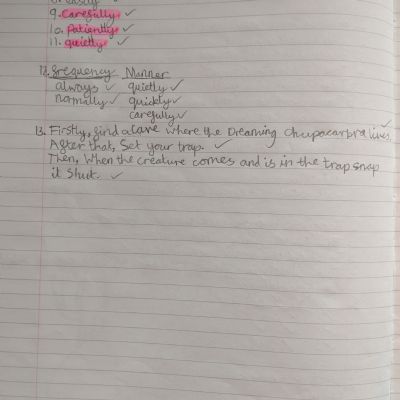 8. easily
9. Carefully ✓
10. Patiently ✓
11. quietly ✓
12. frequency Manner
always ✓ quietly ✓
normally ✓ quickly ✓
carefully ✓
13. Firstly, find a Cave where the Dreaming chupacarbra lives.
After that, Set your trap. ✓
Then, When the creature comes and is in the trap snap
it Shut. ✓